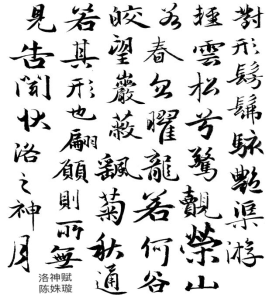 對形髣髴駭艷渠游
極雲松兮驚觀榮山
若春忽曜龍若何谷
皎望巖蔽飄菊秋通
若其形也翩願則所無
見告聞狀洛之神月
洛神赋
陈姝璇